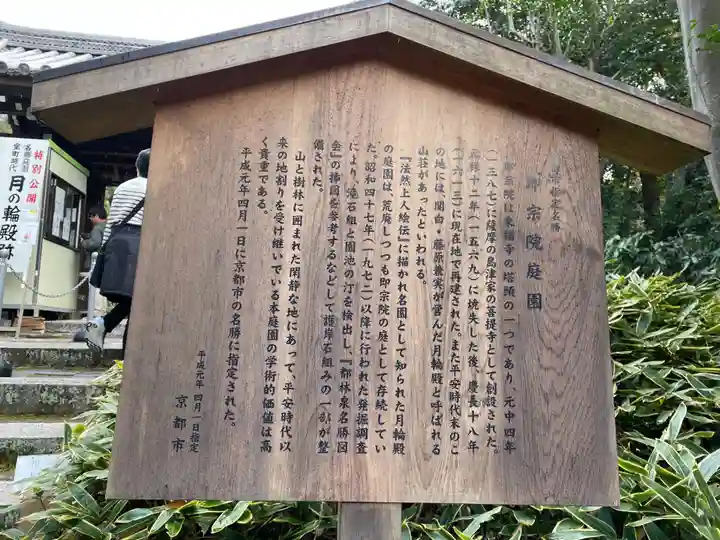 京都市指定名勝
即宗院庭園
即宗院は東福寺の塔頭の一つであり、元中四年
(一三八七)に薩摩の島津家の菩提寺として創設された。
永禄十二年(一五六九)に焼失した後、慶長十八年
(一六一三)に現在地で再建された。また平安時代末のこ
の地には、関白・藤原兼実が営んだ月輪殿と呼ばれる
山荘があったといわれる。
『法然上人絵伝』に描かれ名園として知られた月輪殿
の庭園は、荒廃しつつも即宗院の庭として存続してい
た。昭和四十七年(一九七二)以降に行われた発掘調査
により、滝石組と園池の汀を検出し、『都林泉名勝図
会』の挿図を参考するなどして護岸石組みの一部が整
備された。
山と樹林に囲まれた閑静な地にあって、平安時代以
来の地割りを受け継いでいる本庭園の学術的価値は高
く貴重である。
平成元年四月一日に京都市の名勝に指定された。
平成元年四月一日指定
京都市
特別公開
名勝庭園
室町時代
月の輪殿跡